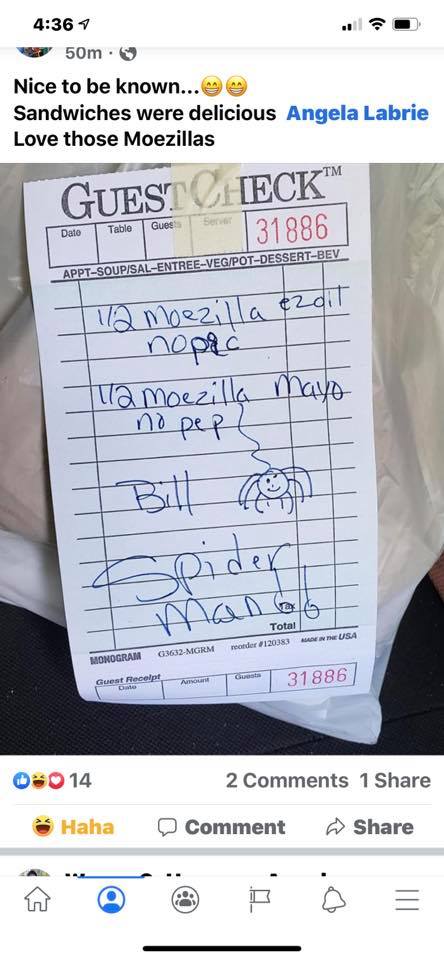 4:36
50m
Nice to be known...😁😁
Sandwiches were delicious Angela Labrie
Love those Moezillas
GUEST CHECK™
Date Table Guests Server 31886
APPT–SOUP/SAL–ENTREE–VEG/POT–DESSERT–BEV
1/2 moezilla ezoil
no
1/2 moezilla mayo
no pep
Bill
Spider
man
Tax
Total
MONOGRAM G3632-MGRM reorder #120383 MADE IN THE USA
Guest Receipt
Date Amount Guests 31886
14 2 Comments 1 Share
Haha Comment Share